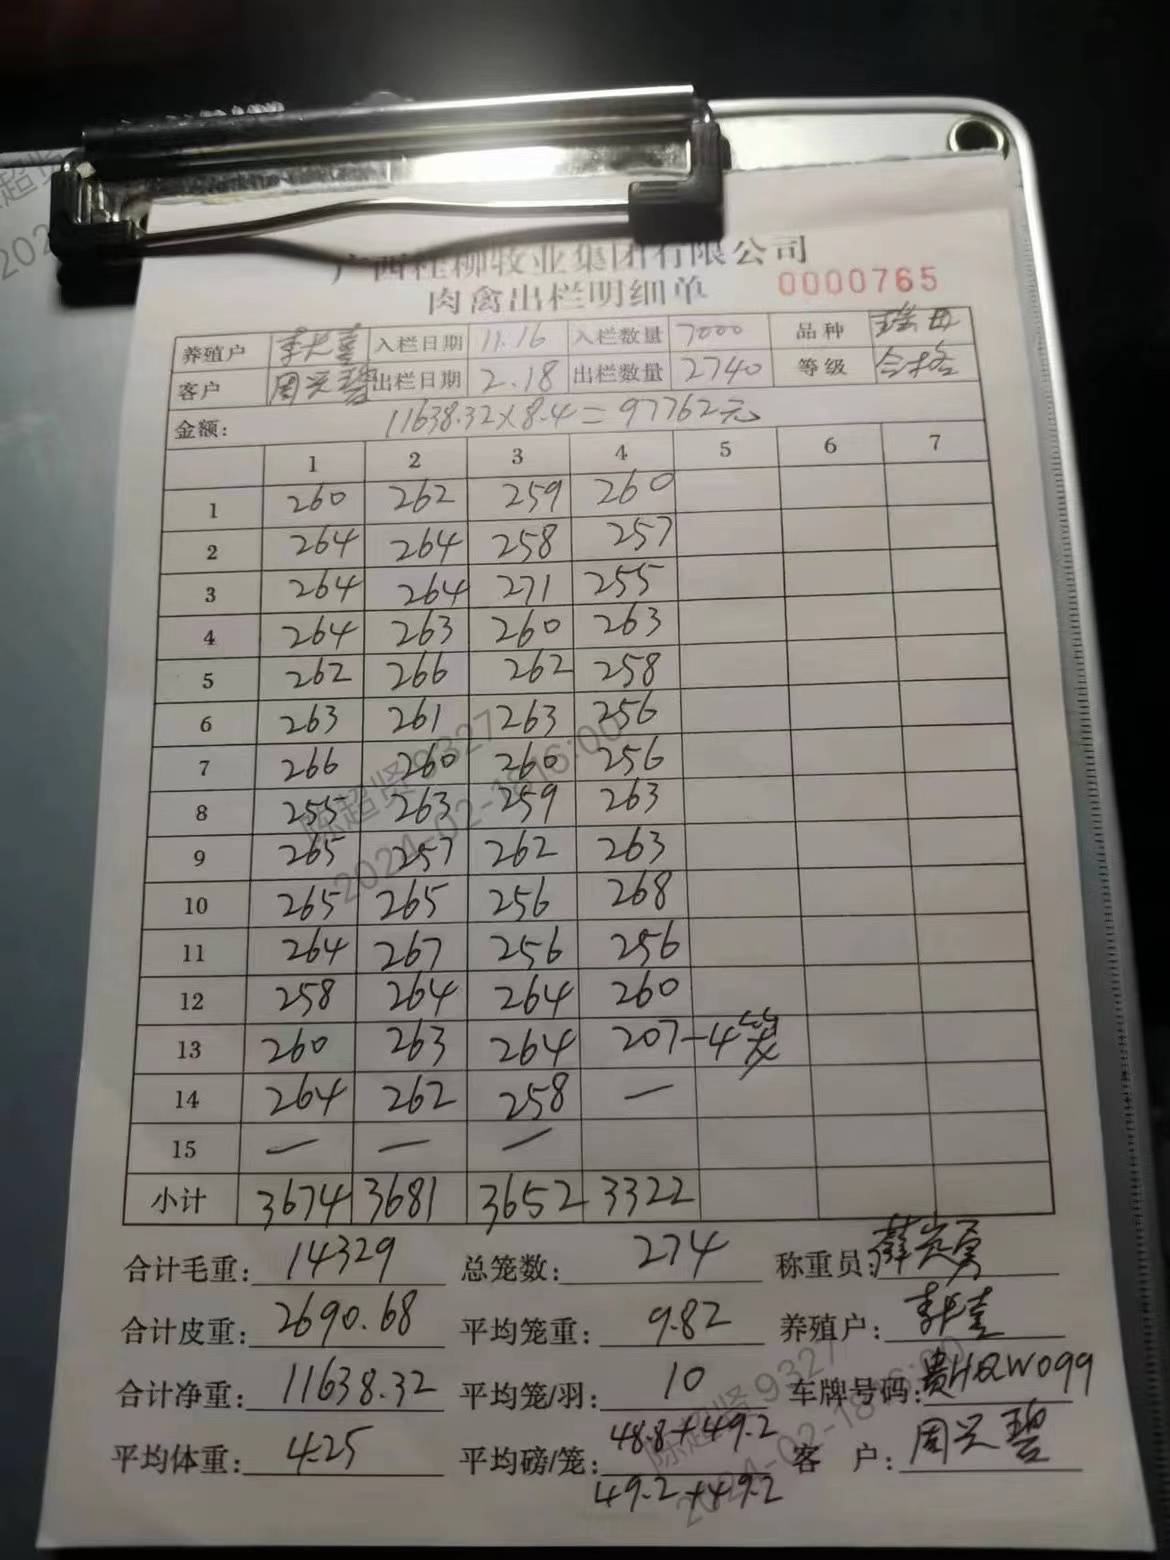 广西桂柳牧业集团有限公司
肉禽出栏明细单 0000765
养殖户 入栏日期 11.16 入栏数量 7000 品种
客户 周兴碧 出栏日期 2.18 出栏数量 2740 等级 合格
金额: 11638.32×8.4=97762元
1 2 3 4 5 6 7
1 260 262 259 260
2 264 264 258 257
3 264 264 271 255
4 264 263 260 263
5 262 266 262 258
6 263 261 263 256
7 266 260 260 256
8 255 263 259 263
9 265 257 262 263
10 265 265 256 268
11 264 267 256 256
12 258 264 264 260
13 260 263 264 207-4笼
14 264 262 258 —
15 — — —
小计 3674 3681 3652 3322
合计毛重: 14329 总笼数: 274 称重员:
合计皮重: 2690.68 平均笼重: 9.82 养殖户:
合计净重: 11638.32 平均笼/羽: 10 车牌号码: 贵HQW099
平均体重: 4.25 平均磅/笼: 48.8+49.2 客 户: 周兴碧
49.2+49.2
陈超贤 9327
2024-02-18 16:00
陈超贤 9327
2024-02-18 16:00